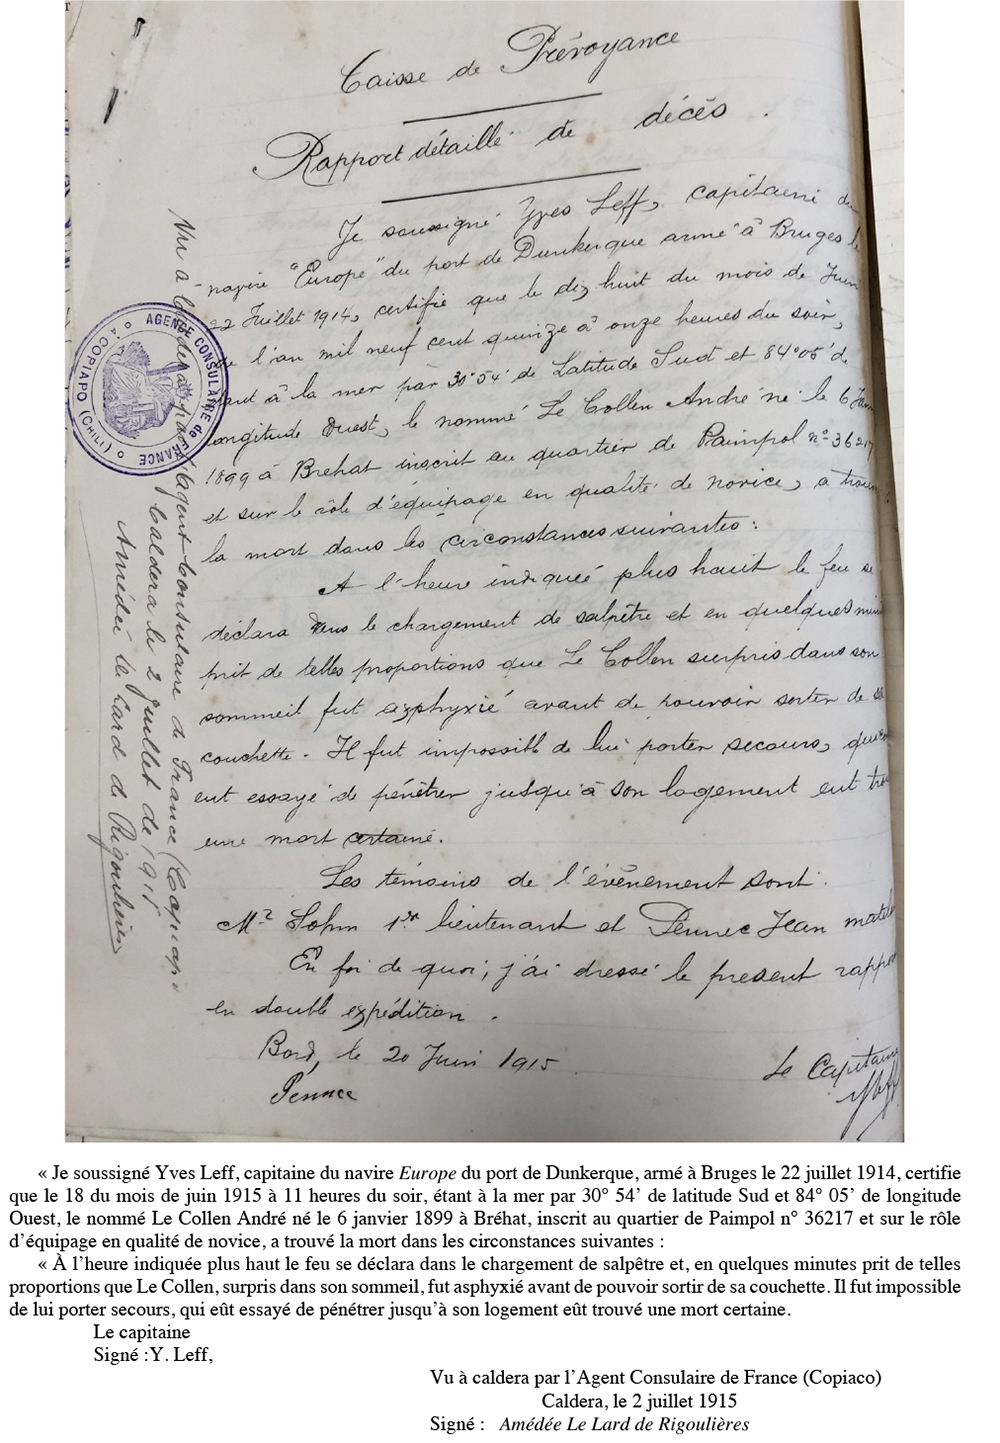 Caisse de Prévoyance
Rapport détaillé de décès.
Je soussigné Yves Leff, capitaine du
navire "Europe" du port de Dunkerque armé à Bruges le
22 Juillet 1914, certifie que le dix huit du mois de Juin
de l'an mil neuf cent quinze à onze heures du soir,
étant à la mer par 30° 54' de Latitude Sud et 84° 05' de
longitude Ouest, le nommé Le Collen André né le 6 Jan
1899 à Bréhat inscrit au quartier de Paimpol n° 36217
et sur le rôle d'équipage en qualité de novice, a trouv
la mort dans les circonstances suivantes :
A l'heure indiqueé plus haut le feu se
déclara dans le chargement de salpêtre et en quelques min
prit de telles proportions que Le Collen surpris dans son
sommeil fut azphyxié avant de pouvoir sorter de sa
couchette. Il fut impossible de lui porter secours, qui
eut essayé de pénétrer jusqu'à son logement eut trou
une mort certaine.
Les témoins de l'évènement sont :
Mr Sohm 1er lieutenant et Pennec Jean matelo
En foi de quoi, j'ai dressé le present rappor
en double expédition.
Bord, le 20 Juin 1915.
Le Capitaine
Pennec
YLeff
Vu à Caldera par l'agent Consulaire de France (Copiapo
Caldera le 2 Juillet de 1915
Amédée le Lard de Rigoulières
AGENCE CONSULAIRE de FRANCE
A COPIAPO (CHILI)
« Je soussigné Yves Leff, capitaine du navire Europe du port de Dunkerque, armé à Bruges le 22 juillet 1914, certifie
que le 18 du mois de juin 1915 à 11 heures du soir, étant à la mer par 30° 54’ de latitude Sud et 84° 05’ de longitude
Ouest, le nommé Le Collen André né le 6 janvier 1899 à Bréhat, inscrit au quartier de Paimpol n° 36217 et sur le rôle
d’équipage en qualité de novice, a trouvé la mort dans les circonstances suivantes :
« À l’heure indiquée plus haut le feu se déclara dans le chargement de salpêtre et, en quelques minutes prit de telles
proportions que Le Collen, surpris dans son sommeil, fut asphyxié avant de pouvoir sortir de sa couchette. Il fut impossible
de lui porter secours, qui eût essayé de pénétrer jusqu’à son logement eût trouvé une mort certaine.
Le capitaine
Signé :Y. Leff,
Vu à caldera par l’Agent Consulaire de France (Copiaco)
Caldera, le 2 juillet 1915
Signé : Amédée Le Lard de Rigoulières